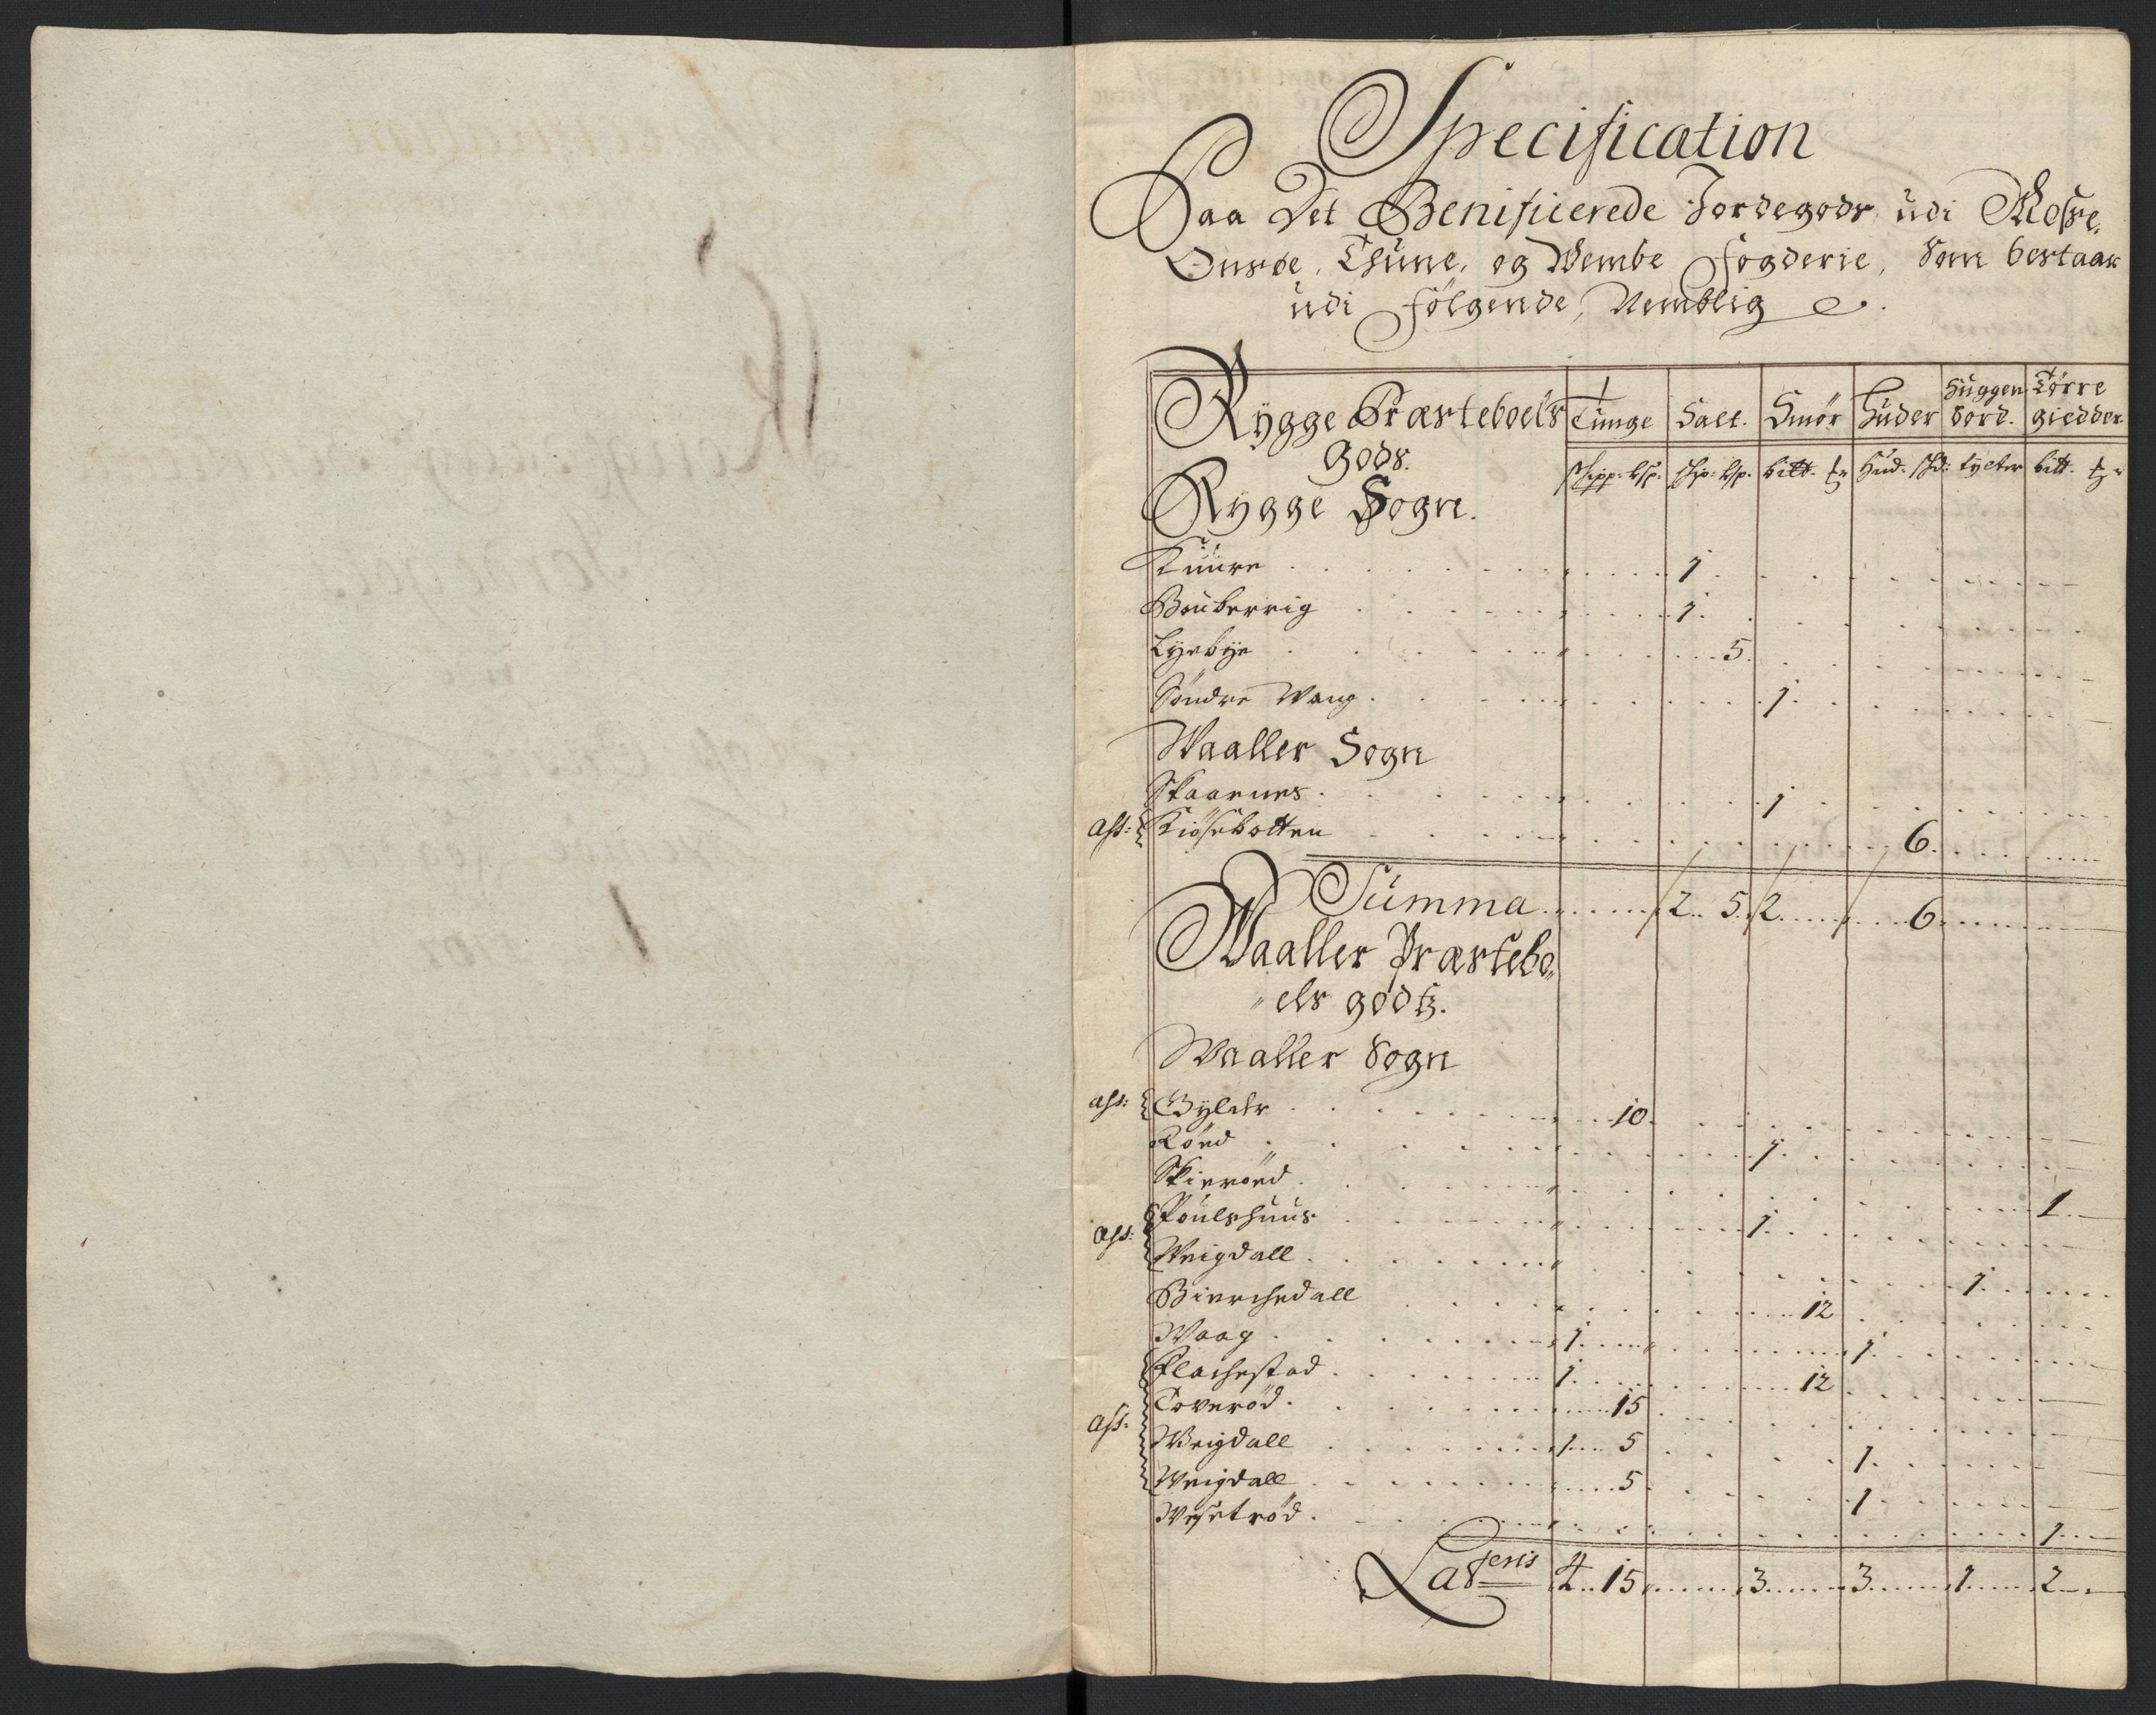 Specification
Paa Det Benificerede Jordegods udi Mosse,
Onsøe, Thune, og Wembe Fogderie, Som bestaar
udi Fölgende, Nemblig
Rygge Præsteboels Tunge Salt. Smør Huder Huggen Tørre
bord. giedder
Gods. Schipp: lsp: schp: lsp. bitt. Hud: tylter bitt.
Rygge Sogn.
Kuure 1
Bouberrig 1
Lyebye 5
Søndre Wang 1
Waaller Sogn
Skaarnes 1
Ass: Kiøsebotten 6
Summa 2 5 2 6
Waaller Præstebo„
„els godtz.
Waaller Sogn
Ass: Gylder 10
Röed 1
Skieröed 1
Poulshuus 1
Ass: Weigdall 1
Bierchedall 12
Waag 1 1
Flachestad 1 12
Toveröd 15
Ass: Weigdall 1 5 1
Weigdall 5 1
Wesetröd 1
Lateris 4 15 3 3 1 2